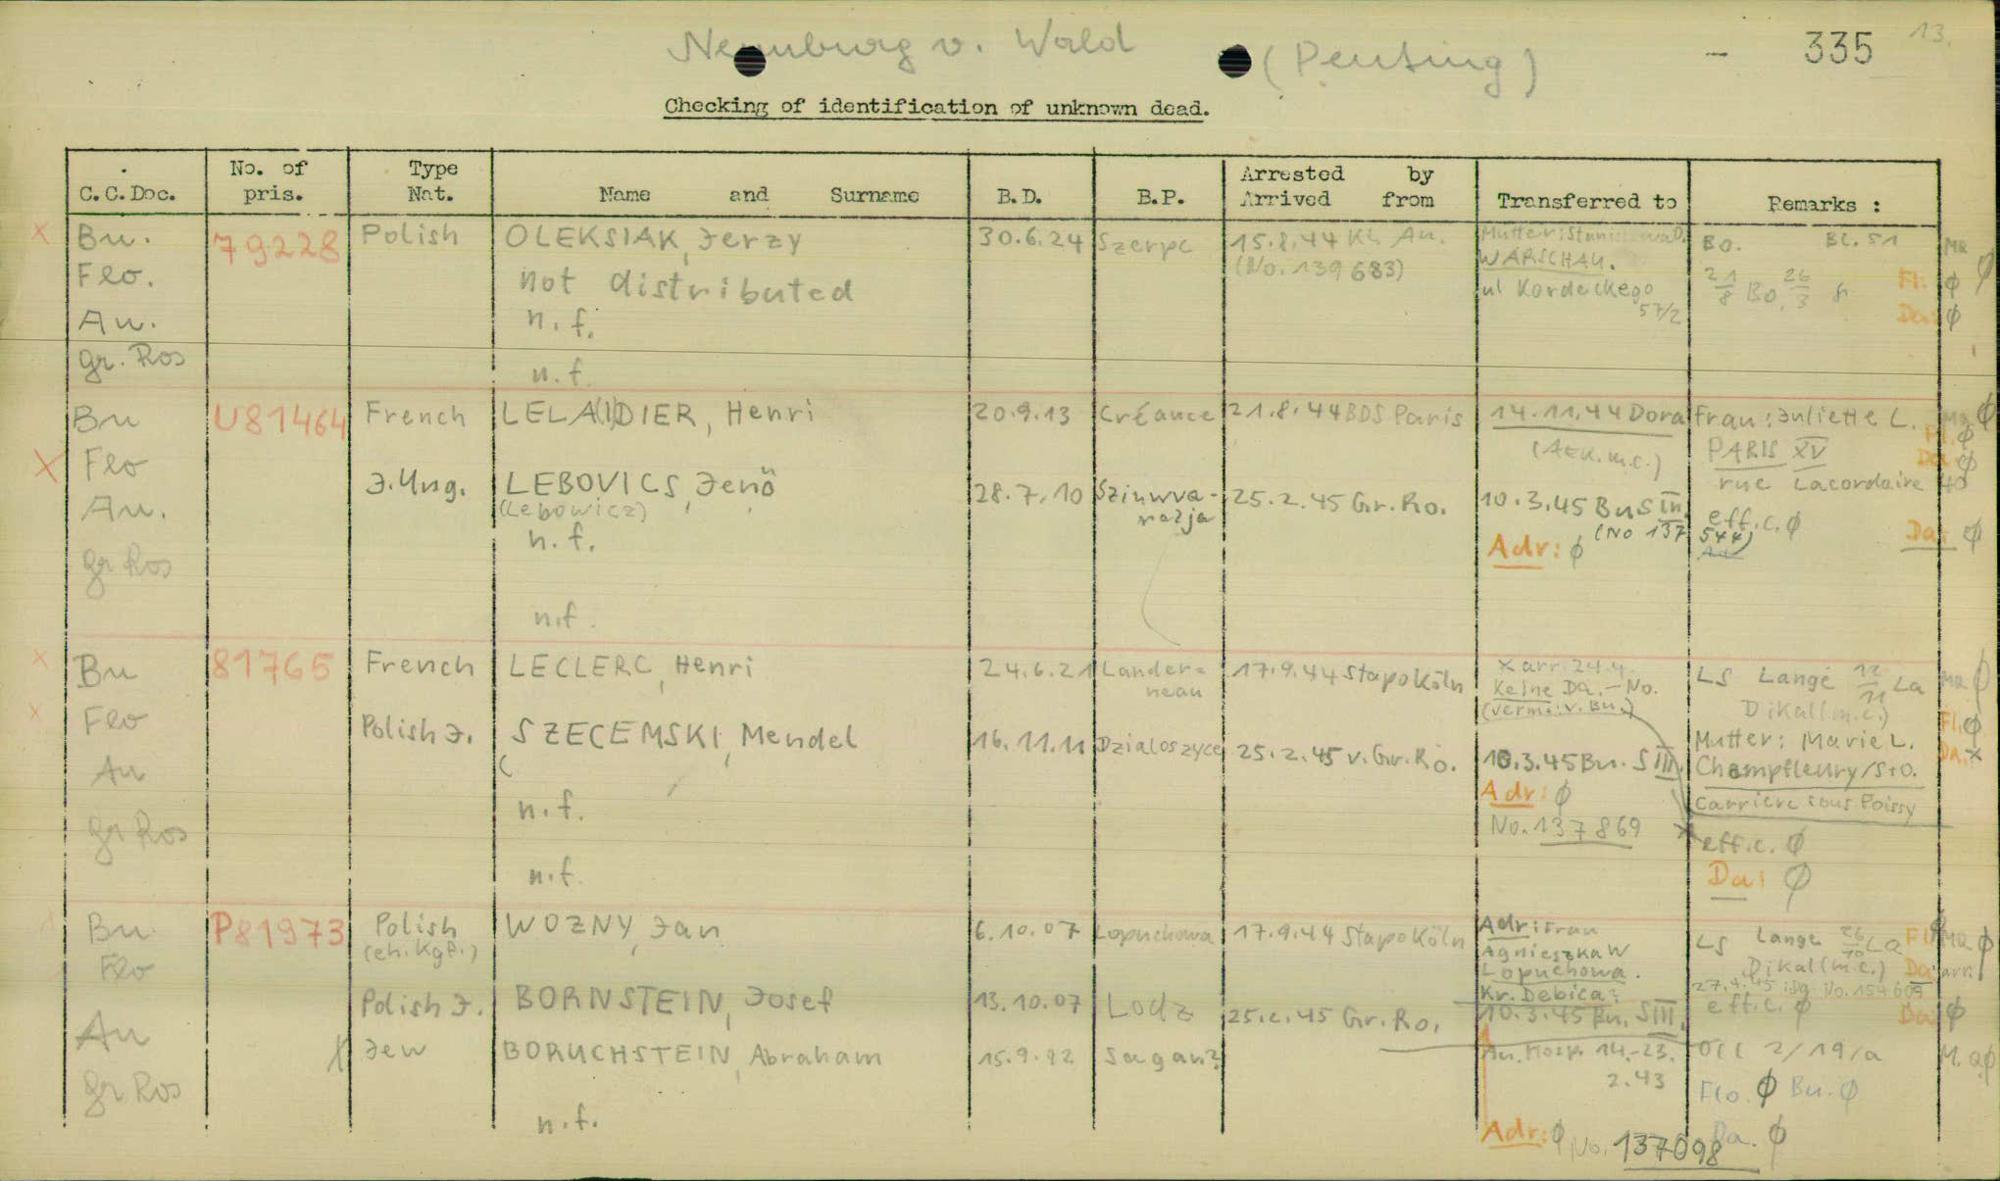 13.
Neunburg v. Wald (Penting) - 335
Checking of identification of unknown dead.
C.C.Doc. No. of pris. Type Nat. Name and Surname B.D. B.P. Arrested by Arrived from Transferred to Remarks :
x Bu. 79228 Polish OLEKSIAK, Jerzy 30.6.24 Szerpc 15.8.44 KL Au. Mutter: WARSCHAU. Bo. BL. 51 MR Ø
Flo. not distributed (No. 139683) ul Kordeckego 57/2 21/8 Bo. 26/3 Fl. Ø
Au. n.f. Da: Ø
gr. Ros n.f.
Bu U81464 French LELA(I)DIER, Henri 20.9.13 Créance 21.8.44 BDS Paris 14.11.44 Dora Frau: Juliette L. Ma Ø
(AEK.m.c.) PARIS XV Fl. Ø
x Flo rue Lacordaire 40 Da Ø
J.Ung. LEBOVICS, Jenö 28.7.10 Szinwva-razja 25.2.45 Gr.Ro. 10.3.45 Bu S III eff.c. Ø
Au. (Lebowicz) (No 137544) Da: Ø
n.f. Adr: Ø
gr Ros
n.f.
x Bu 81765 French LECLERC, Henri 24.6.21 Landerneau 17.9.44 Stapo Köln x arr. 24.4. LS Lange 12/11 La MR Ø
Keine Da.-No. Dikal(m.c.)
x Flo (verm: v. Bu.) Fl. Ø
Polish J. SZECEMSKI, Mendel 16.11.11 Dzialoszyce 25.2.45 v. Gr.Ro. 10.3.45 Bu. S III Mutter: Marie L. Da. x
Au ( Adr: Ø Champfleury/S+O.
n.f. No. 137869 Carriere sous Poissy
gr Ros x effic. Ø
n.f. Da: Ø
Bu P81973 Polish WOZNY, Jan 6.10.07 Lopuchowa 17.9.44 Stapo Köln Adr: Frau LS Lange 26/10 La Fl MR Ø
(eh. Kgf.) Agnieszka W Dikal(m.c.) Da arr.
Flo Lopuchowa. 27.4.45 No. 154609
Kr. Debica?
Polish J. BORNSTEIN, Josef 13.10.07 Lodz 25.2.45 Gr.Ro. 10.3.45 Bu. S III. effic. Ø Da Ø
Au
x Jew BORUCHSTEIN, Abraham 15.9.92 Sagan? Au. Hosp. 14.-23. OCC 2/19/a M.Q Ø
gr Ros 2.43 Flo. Ø Bu. Ø
n.f. Adr: Ø No. 137098 Da. Ø